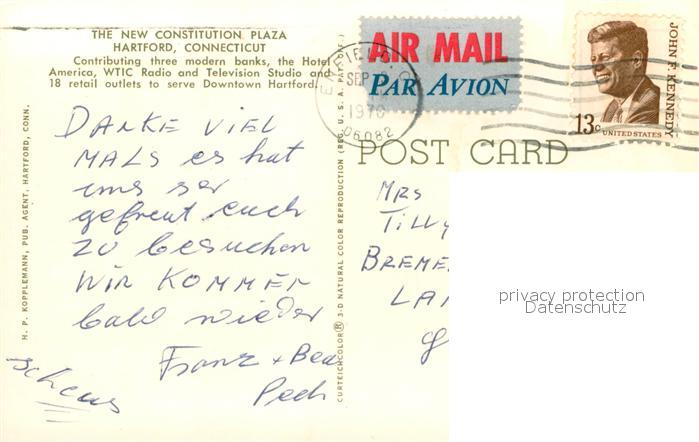 THE NEW CONSTITUTION PLAZA
HARTFORD, CONNECTICUT
Contributing three modern banks, the Hotel
America, WTIC Radio and Television Studio and
18 retail outlets to serve Downtown Hartford.
H. P. KOPPLEMANN, PUB. AGENT, HARTFORD, CONN.
DANKE VIEL
MALS es hat
uns ser
gefreut euch
zu besuchen
WIR KOMMEN
bald wieder
Franz + Bea
Pech
CURTEICHCOLOR® 3-D NATURAL COLOR REPRODUCTION (REG. U. S. A. PAT. OFF.)
AIR MAIL
PAR AVION
SEP
1970
06082
JOHN F. KENNEDY
13c
UNITED STATES
POST CARD
MRS
TILLY
BREME
LA
privacy protection
Datenschutz